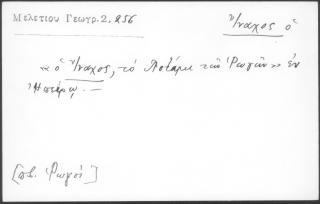 Μελετίου Γεωγρ. 2, 256
Ἴναχος ὁ
« ὁ Ἴναχος, τό Ποτάμι τῶν Ῥωγῶν » ἐν
Ἠπείρῳ. —
[πβ. Ῥωγοί]